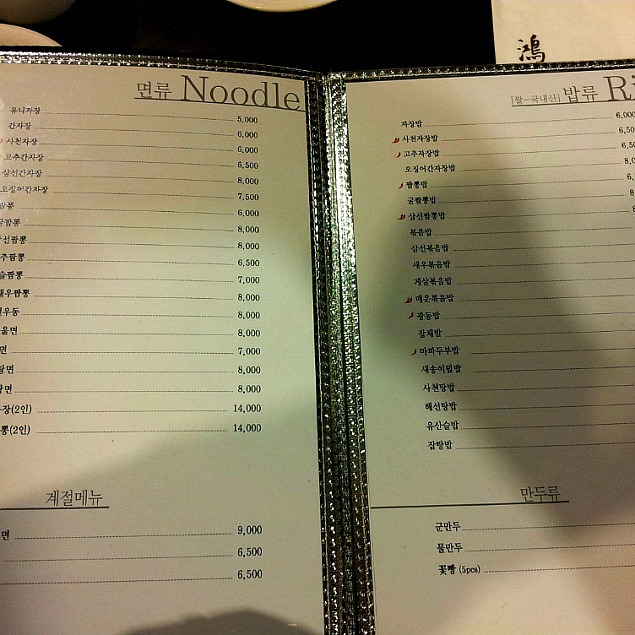 鴻
면류 Noodle
유니자장 5,000
간자장 6,000
사천자장 6,000
고추간자장 6,500
삼선간자장 8,000
오징어간자장 7,500
짬뽕 6,000
굴짬뽕 8,000
삼선짬뽕 8,000
고추짬뽕 6,500
짬뽕 7,000
새우짬뽕 8,000
우동 8,000
울면 8,000
면 7,000
탕면 8,000
면 8,000
장(2인) 14,000
뽕(2인) 14,000
계절메뉴
면 9,000
6,500
6,500
[쌀-국내산] 밥류 Ri
자장밥 6,000
사천자장밥 6,50
고추자장밥 6,50
오징어간자장밥 8,0
짬뽕밥 6,
굴짬뽕밥 8
삼선짬뽕밥 8
볶음밥
삼선볶음밥
새우볶음밥
게살볶음밥
매운볶음밥
광동밥
잡채밥
마파두부밥
새송이덮밥
사천탕밥
해선탕밥
유산슬밥
잡탕밥
만두류
군만두
물만두
꽃빵 (5pcs)